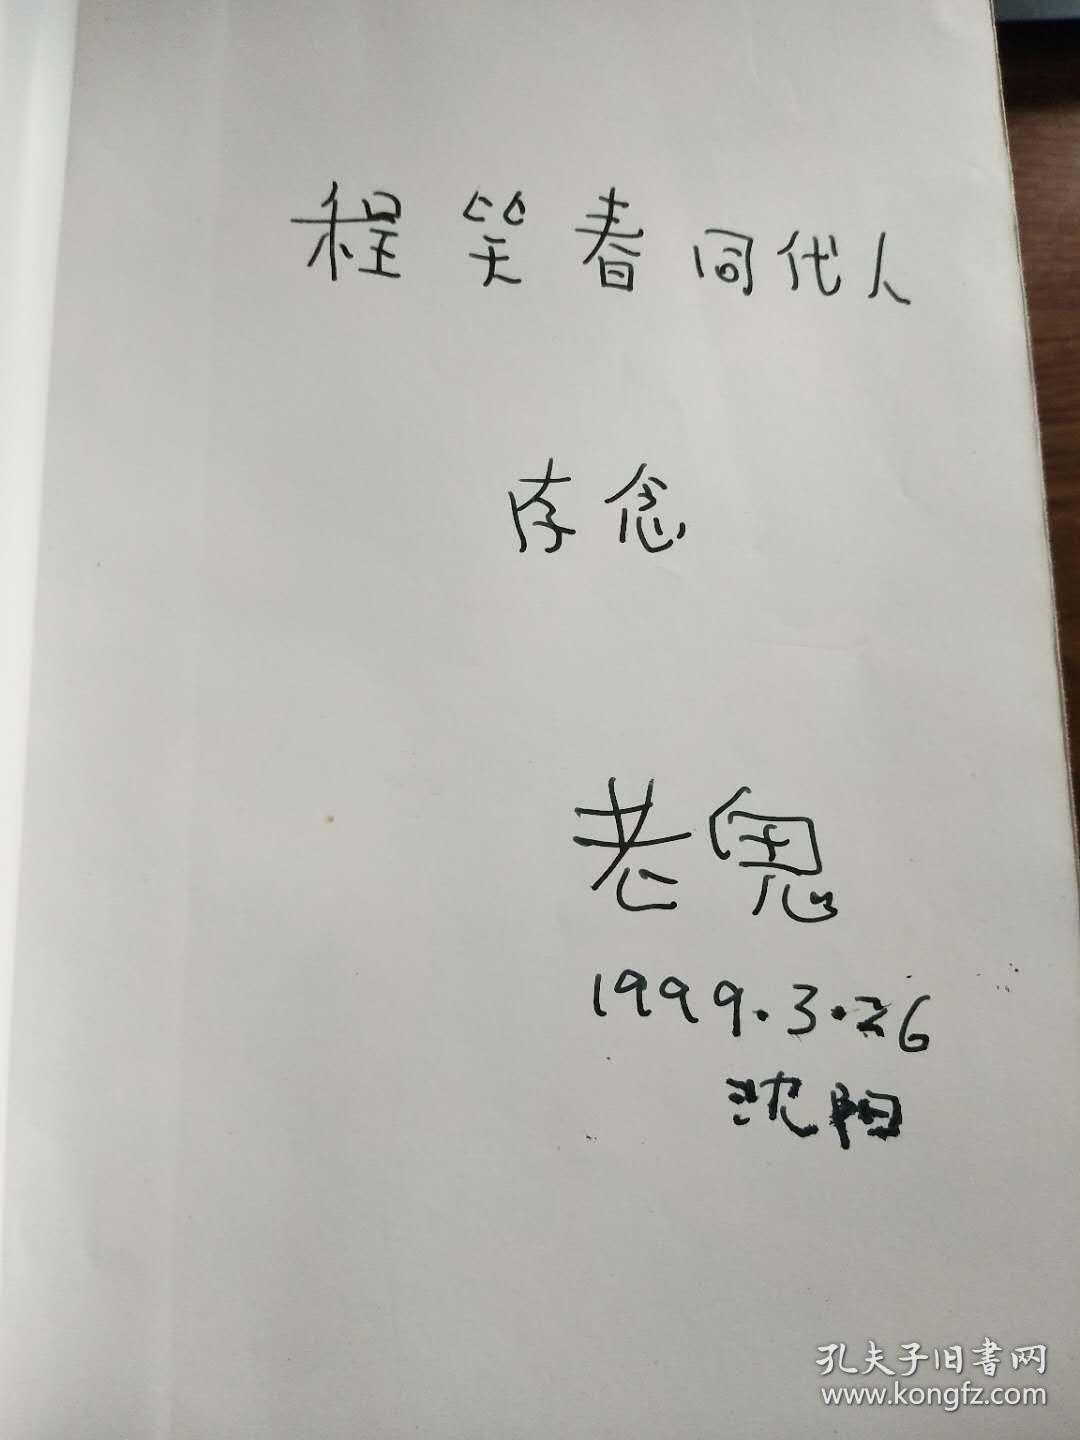 程笑春同代人
存念
老鬼
1999.3.26
沈阳
孔夫子旧書网
www.kongfz.com